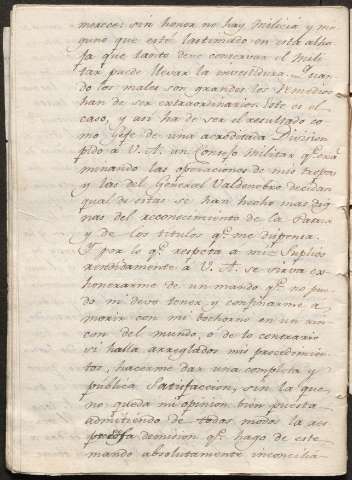 merece: sin honor no hay Milicia y nin-
guno que esté lastimado en esta alha-
ja que tanto deve conservar el Mili-
tar puede llevar la investidura. Quan-
do los males son grandes los remedios
han de ser extraordinarios. Este es el
caso, y asi ha de ser el resultado co-
mo Gefe de una acreditada Division
pido a V. A. un Consejo Militar qe. exa-
minando las operaciones de mis tropas
y las del General Valdenebro decidan
qual de estas se han hecho mas dig-
nas del reconocimiento de la Patria
y de los titulos qe. me dispensa.
Y por lo qe. respeta a mi: Suplico
rendidamente à V. A. se sirva ex-
honerarme de un mando qe. no pue-
do ni devo tener, y confinarme a
morir con mi bochorno en un rin-
con del mundo, ó de lo contrario
si halla arreglados mis procedimien-
tos, hacerme dar una completa y
publica Satisfaccion, sin la que
no queda mi opinion bien puesta
admitiendo de todos modos la
demision qe. hago de este
mando absolutamente inconcilia-